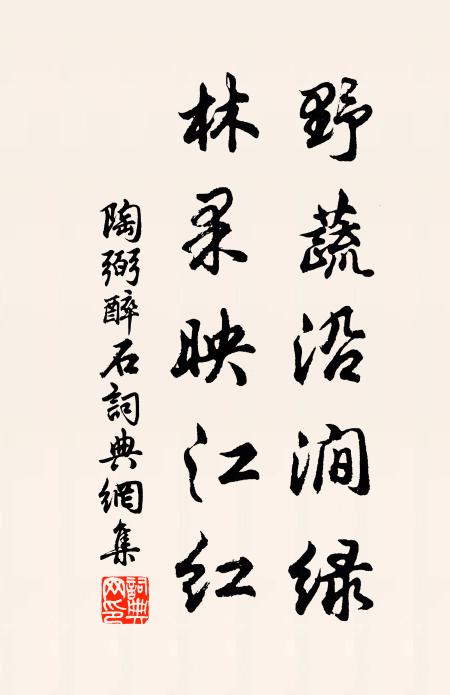 野蔬沿涧绿
林果映江红
陶弼醉石詞典網集
詞典网印